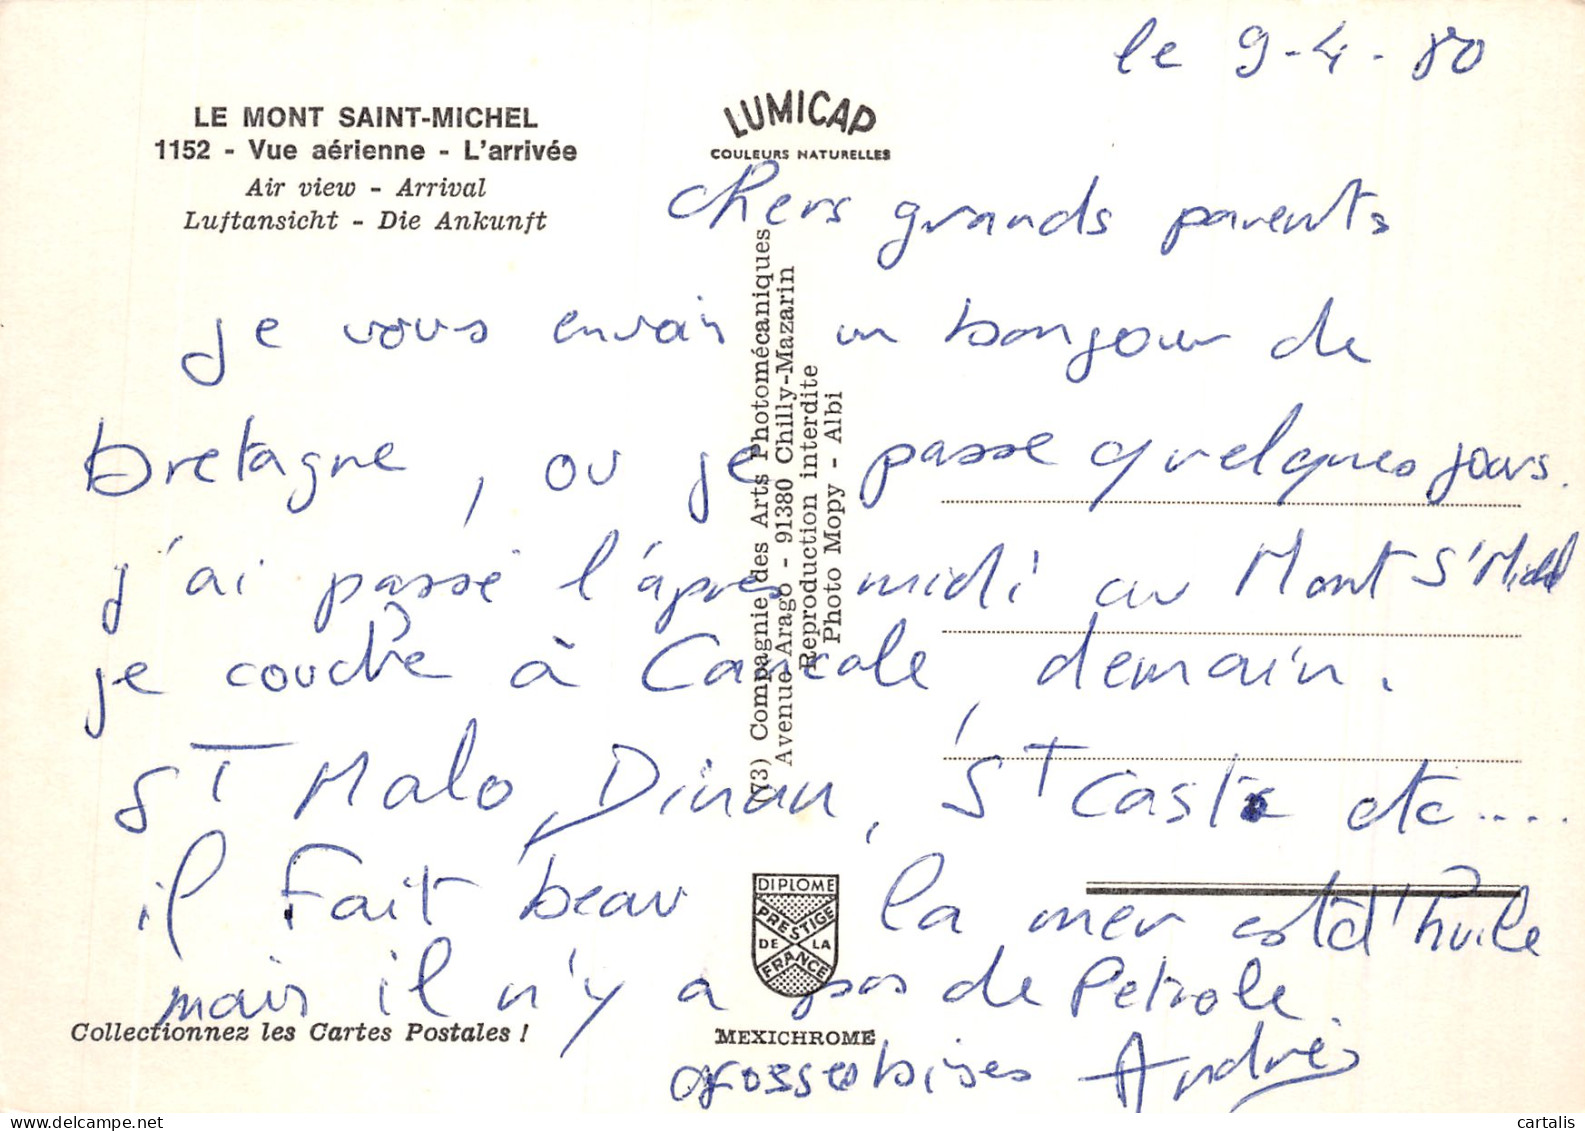 le 9-4-80
LE MONT SAINT-MICHEL
1152 - Vue aérienne - L'arrivée
Air view - Arrival
Luftansicht - Die Ankunft
LUMICAP
COULEURS NATURELLES
chers grands parents
je vous envoir un bonjour de
bretagne, ou je passe quelques jours.
j'ai passé l'après midi au Mont St Michel
je couche à Cancale, demain.
ST Malo, Dinan, ST Cast etc....
il Fait beau la mer est d'huile
mais il n'y a pas de Petrole.
grosses bises Andrés
(73) Compagnie des Arts Photomécaniques
Avenue Arago - 91380 Chilly-Mazarin
Reproduction interdite
Photo Mopy - Albi
DIPLOME
PRESTIGE
DE LA
FRANCE
Collectionnez les Cartes Postales !
MEXICHROME
cartalis